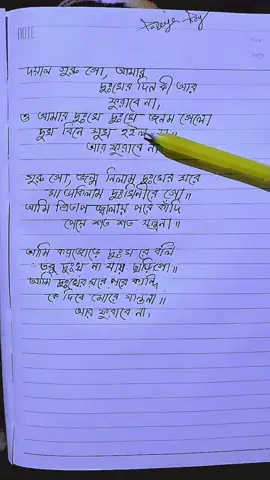 দয়াল গুরু গো, আমার
দুঃখের দিন কী আর
ফুরাবে না,
ও আমার দুঃখে দুঃখে জনম গেলো
দুখ বিনে সুখ হইল না॥
আর ফুরাবে না।
গুরু গো, জন্ম নিলাম দুঃখের ঘরে
মা ডাকিলাম দুঃখিনীরে গো॥
আমি ত্রিতাপ জ্বালায় পরে কাঁদি
পেয়ে শত শত যন্ত্রনা॥
আমি করজোড়ে দুঃখ রে বলি
তবু দুঃখ না যায় ছাড়িগো॥
আমি দুঃখের ঘরে পরে কান্দি
কে দিবে মোরে সান্তনা॥
আর ফুরাবে না।